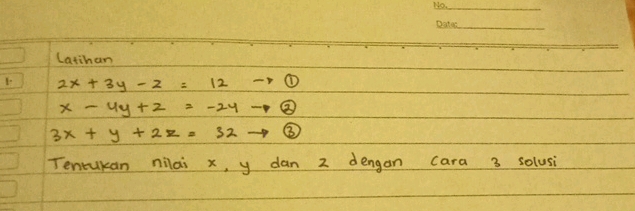 No.
Date:
Latihan
1. 2x + 3y - z = 12 → ①
x - 4y + z = -24 → ②
3x + y + 2z = 32 → ③
Tentukan nilai x, y dan z dengan cara 3 solusi